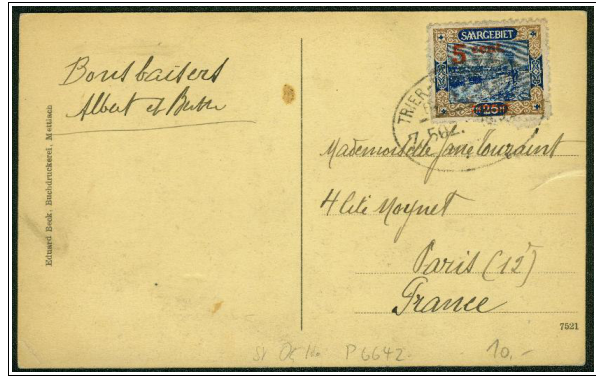 Bons baisers
Albert et
Eduard Beck, Buchdruckerei, Mettlach
SAARGEBIET
5 cent
25
TRIER-
Mademoiselle
4 Cité Moynet
Paris (12e)
France
7521
P 6642.
10.-